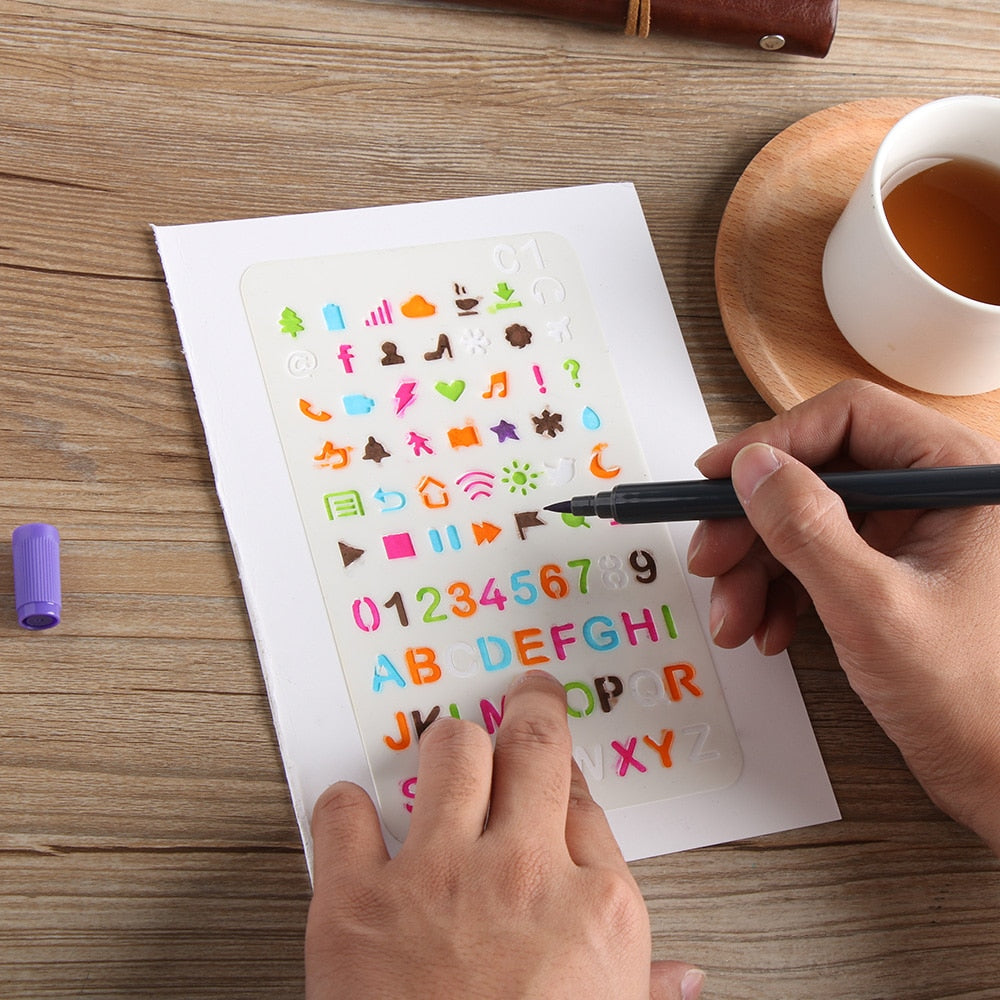 C1
C
@ f
! ?
0123456789
ABCDEFGHI
JK M OPQR
S W XYZ